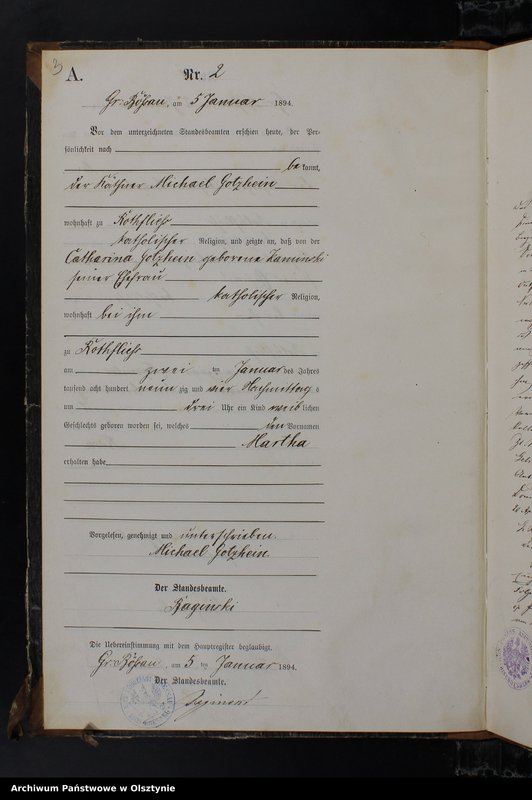 3
A.
Nr. 2
Gr. Bößau, am 5 Januar 1894.
Vor dem unterzeichneten Standesbeamten erschien heute, der Per-
sönlichkeit nach
bekannt,
der Käthner Michael Golzhein
wohnhaft zu Rothfließ
katholischer Religion, und zeigte an, daß von der
Catharina Golzhein geborene Kaminski
seiner Ehefrau
katholischer Religion,
wohnhaft bei ihm
zu Rothfließ
am zwei ten Januar des Jahres
tausend acht hundert neun zig und vier Nachmittags
um drei Uhr ein Kind weiblichen
Geschlechts geboren worden sei, welches den Vornamen
Martha
erhalten habe
Vorgelesen, genehmigt und unterschrieben.
Michael Golzhein.
Der Standesbeamte.
Baginski
Die Uebereinstimmung mit dem Hauptregister beglaubigt.
Gr. Bößau, am 5 ten Januar 1894.
Der Standesbeamte.
Baginski
Archiwum Państwowe w Olsztynie